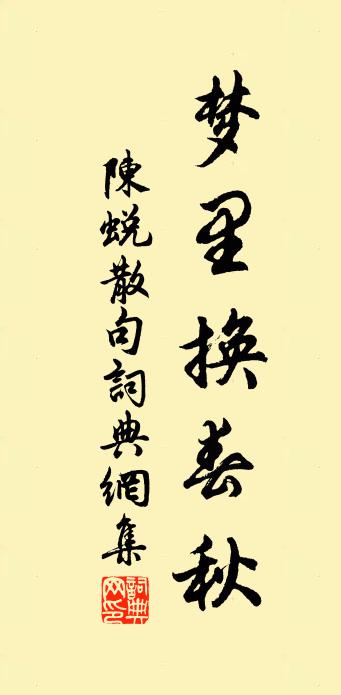 梦里换春秋
陳蜕散句詞典網集
詞典
网印